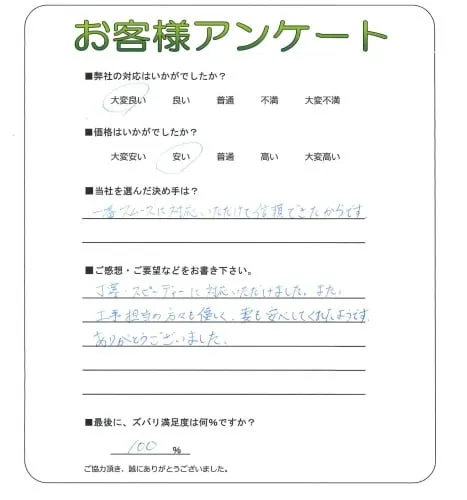 お客様アンケート
■弊社の対応はいかがでしたか？
大変良い 良い 普通 不満 大変不満
■価格はいかがでしたか？
大変安い 安い 普通 高い 大変高い
■当社を選んだ決め手は？
一番スムーズに対応いただけて信頼できたからです
■ご感想・ご要望などをお書き下さい。
丁寧・スピーディーに対応いただけました。また、
工事担当の方々も優しく、妻も安心してくれたようです。
ありがとうございました。
■最後に、ズバリ満足度は何％ですか？
100 %
ご協力頂き、誠にありがとうございました。